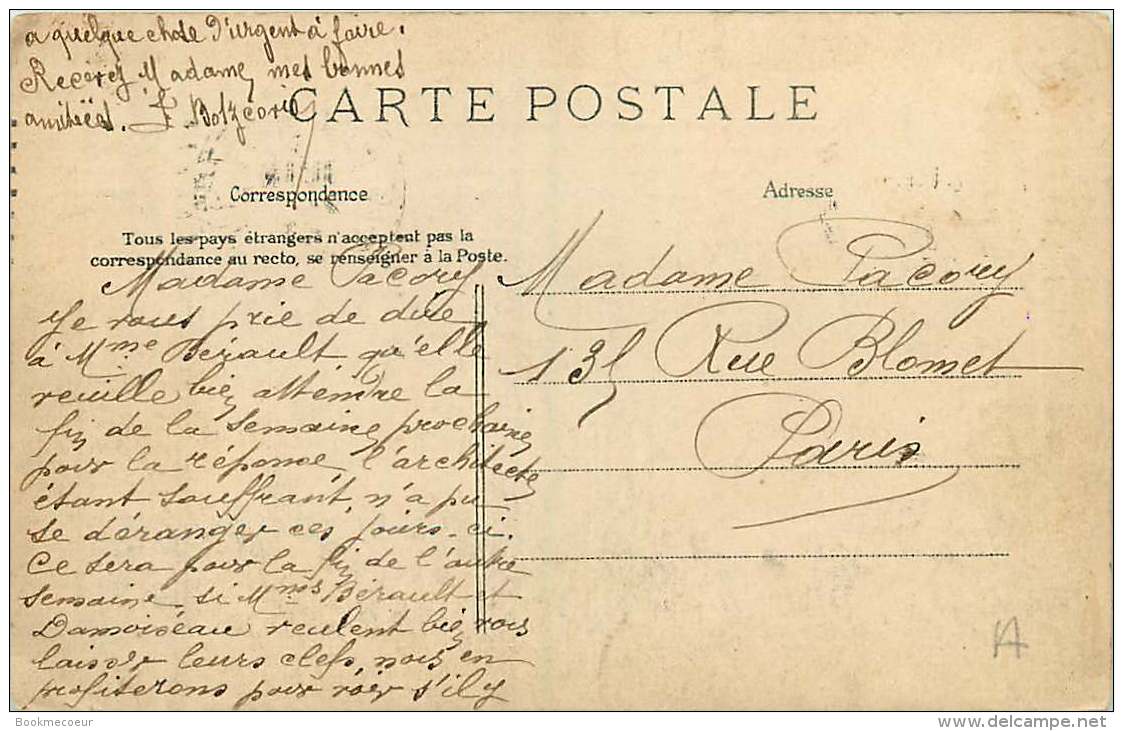 a quelque chose d'urgent à faire.
Recevez Madame, mes bonnes
amitiés. F
CARTE POSTALE
Correspondance
Adresse
Tous les pays étrangers n'acceptent pas la
correspondance au recto, se renseigner à la Poste.
Madame Pacory
Je vous prie de dire
à Mme Bérault qu'elle
veuille bien attendre la
fin de la semaine prochaine
pour la réponse, l'architecte
étant souffrant, n'a pu
se déranger ces jours-ci.
Ce sera pour la fin de l'autre
semaine, si Mmes Bérault et
Damoiseau veulent bien vous
laisser leurs clefs, nous en
profiterons pour voir s'il y
Madame Pacory
131 Rue Blomet
Paris
A
Bookmecoeur
delcampe.net